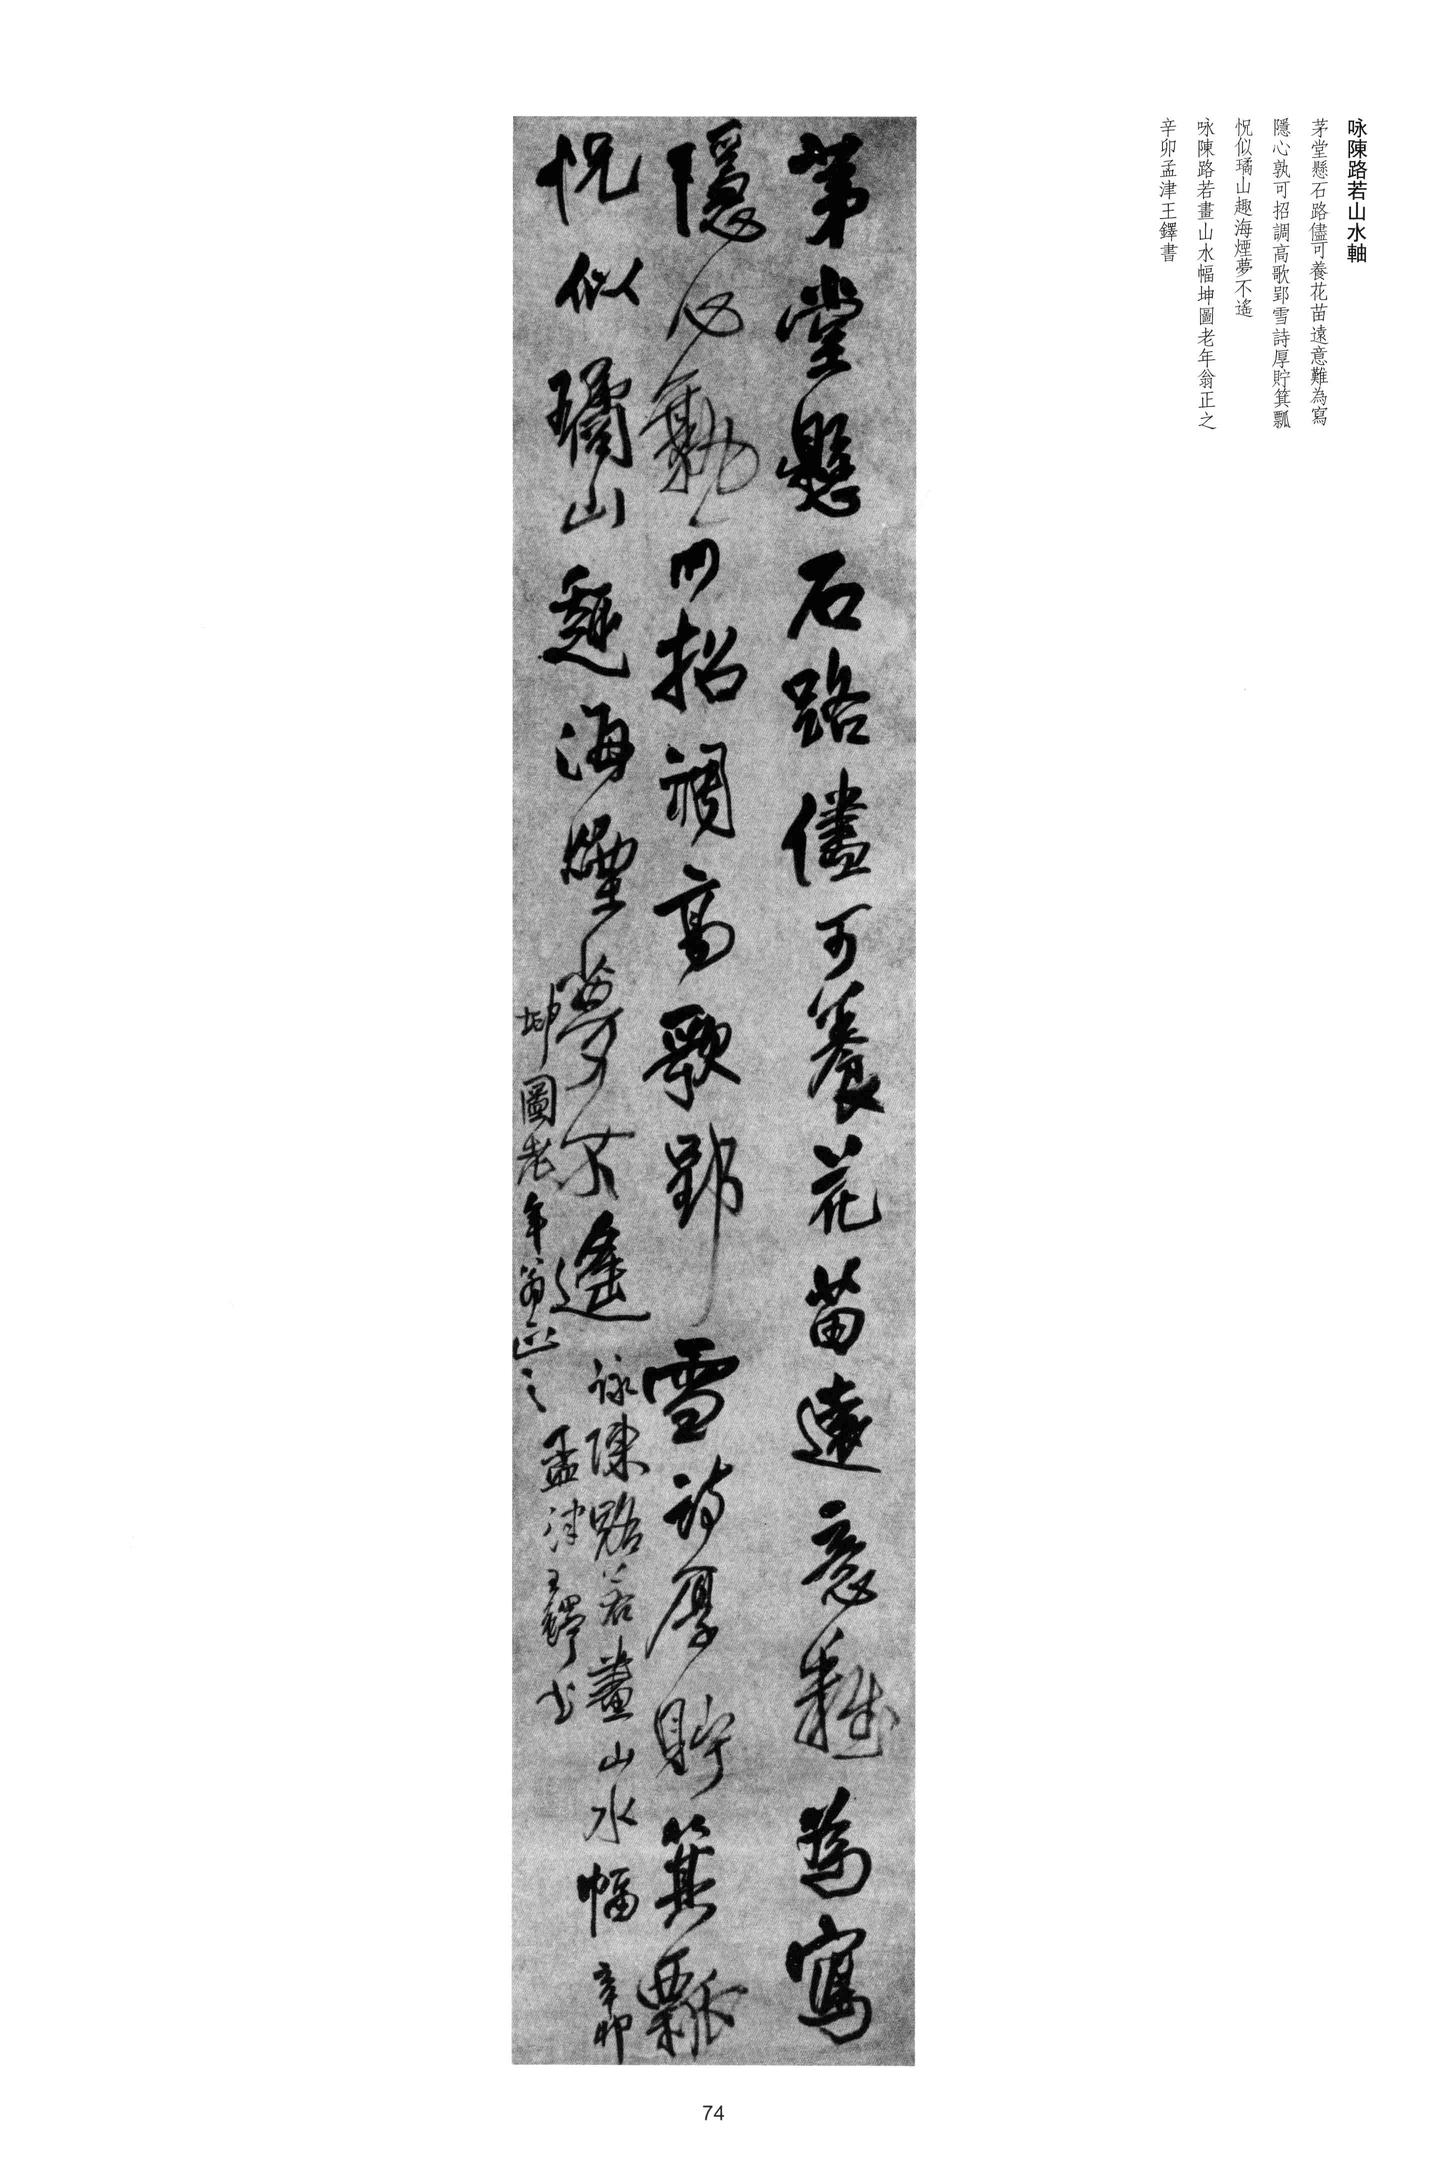 咏陳路若山水軸
茅堂懸石路儘可養花苗遠意難為寫
隱心孰可招調高歌郢雪詩厚貯箕瓢
怳似璚山趣海煙夢不遙
咏陳路若畫山水幅坤圖老年翁正之
辛卯孟津王鐸書
茅堂懸石路儘可養花苗遠意難為寫
隱心孰可招調高歌郢雪詩厚貯箕瓢
怳似璚山趣海煙夢不遙
詠陳路若畫山水幅辛卯
坤圖老年翁正之
孟津王鐸書
74